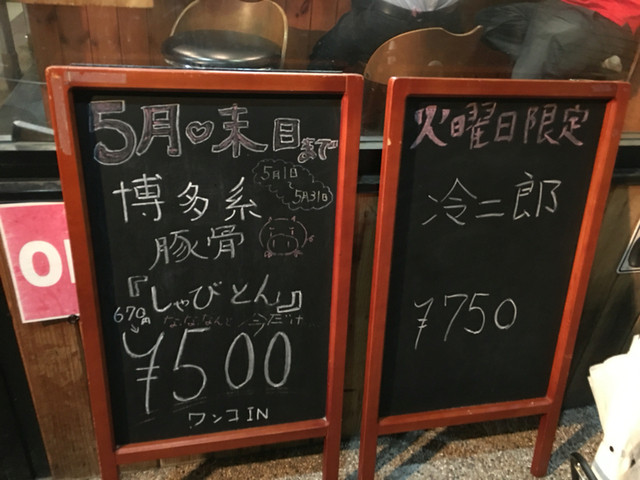 5月♡末日まで
5月1日
〜
5月31日
博多系
豚骨
『しゃびとん』
670円
な、ななんと今だけ
¥500
ワンコIN
火曜日限定
冷二郎
¥750